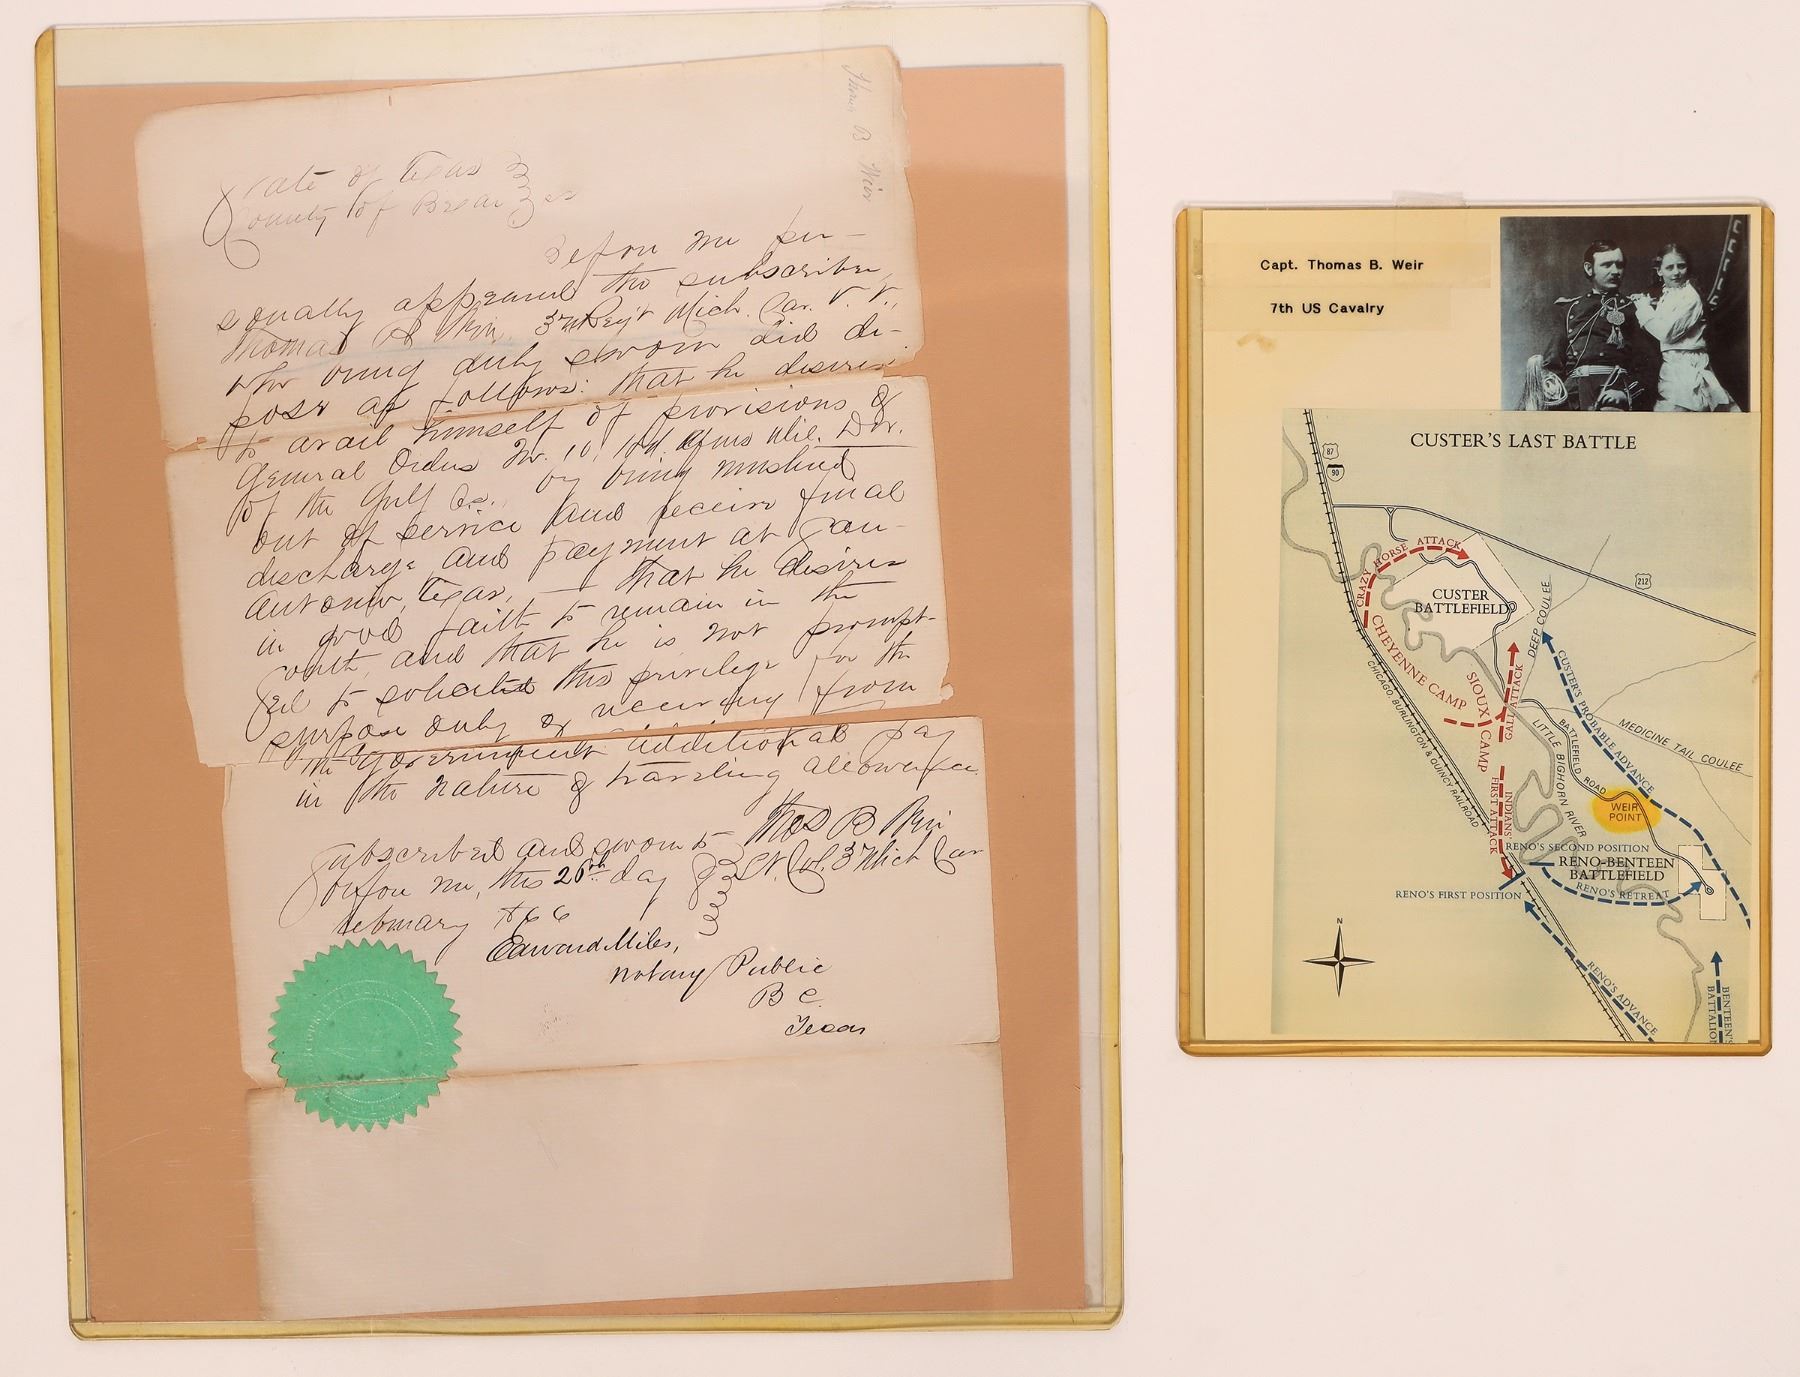 Thomas B Weir
State of Texas
County of Bexar } ss
Before me per-
sonally appeared the subscriber,
Thomas B Weir, 3rd Reg't Mich. Cav. V. V.,
who being duly sworn did de-
pose as follows: that he desires
to avail himself of provisions of
General Orders No. 10, Hd. Qrs Mil. Div.
of the Gulf &c. by being mustered
out of service and receive final
discharge and payment at San
Antonio, Texas, — that he desires
in good faith to remain in the
south, and that he is not prompt-
ed to solicited this privilege for the
purpose only of receiving from
the government additional pay
in the nature of traveling allowance
Thos B Weir
Lt. Col. 3 Mich Cav
Subscribed and sworn to
before me, this 26th day
February 1866
Edward Miles,
Notary Public
B C.
Texas
Capt. Thomas B. Weir
7th US Cavalry
CUSTER'S LAST BATTLE
87
90
212
CRAZY HORSE ATTACK
CUSTER
BATTLEFIELD
DEEP COULEE
CHEYENNE CAMP
SIOUX CAMP
GALL ATTACK
CUSTER'S PROBABLE ADVANCE
CHICAGO, BURLINGTON & QUINCY RAILROAD
LITTLE BIGHORN RIVER
BATTLEFIELD ROAD
MEDICINE TAIL COULEE
WEIR
POINT
INDIANS'
FIRST ATTACK
RENO'S SECOND POSITION
RENO-BENTEEN
BATTLEFIELD
RENO'S RETREAT
RENO'S FIRST POSITION
N
RENO'S ADVANCE
BENTEEN'S
BATTALION